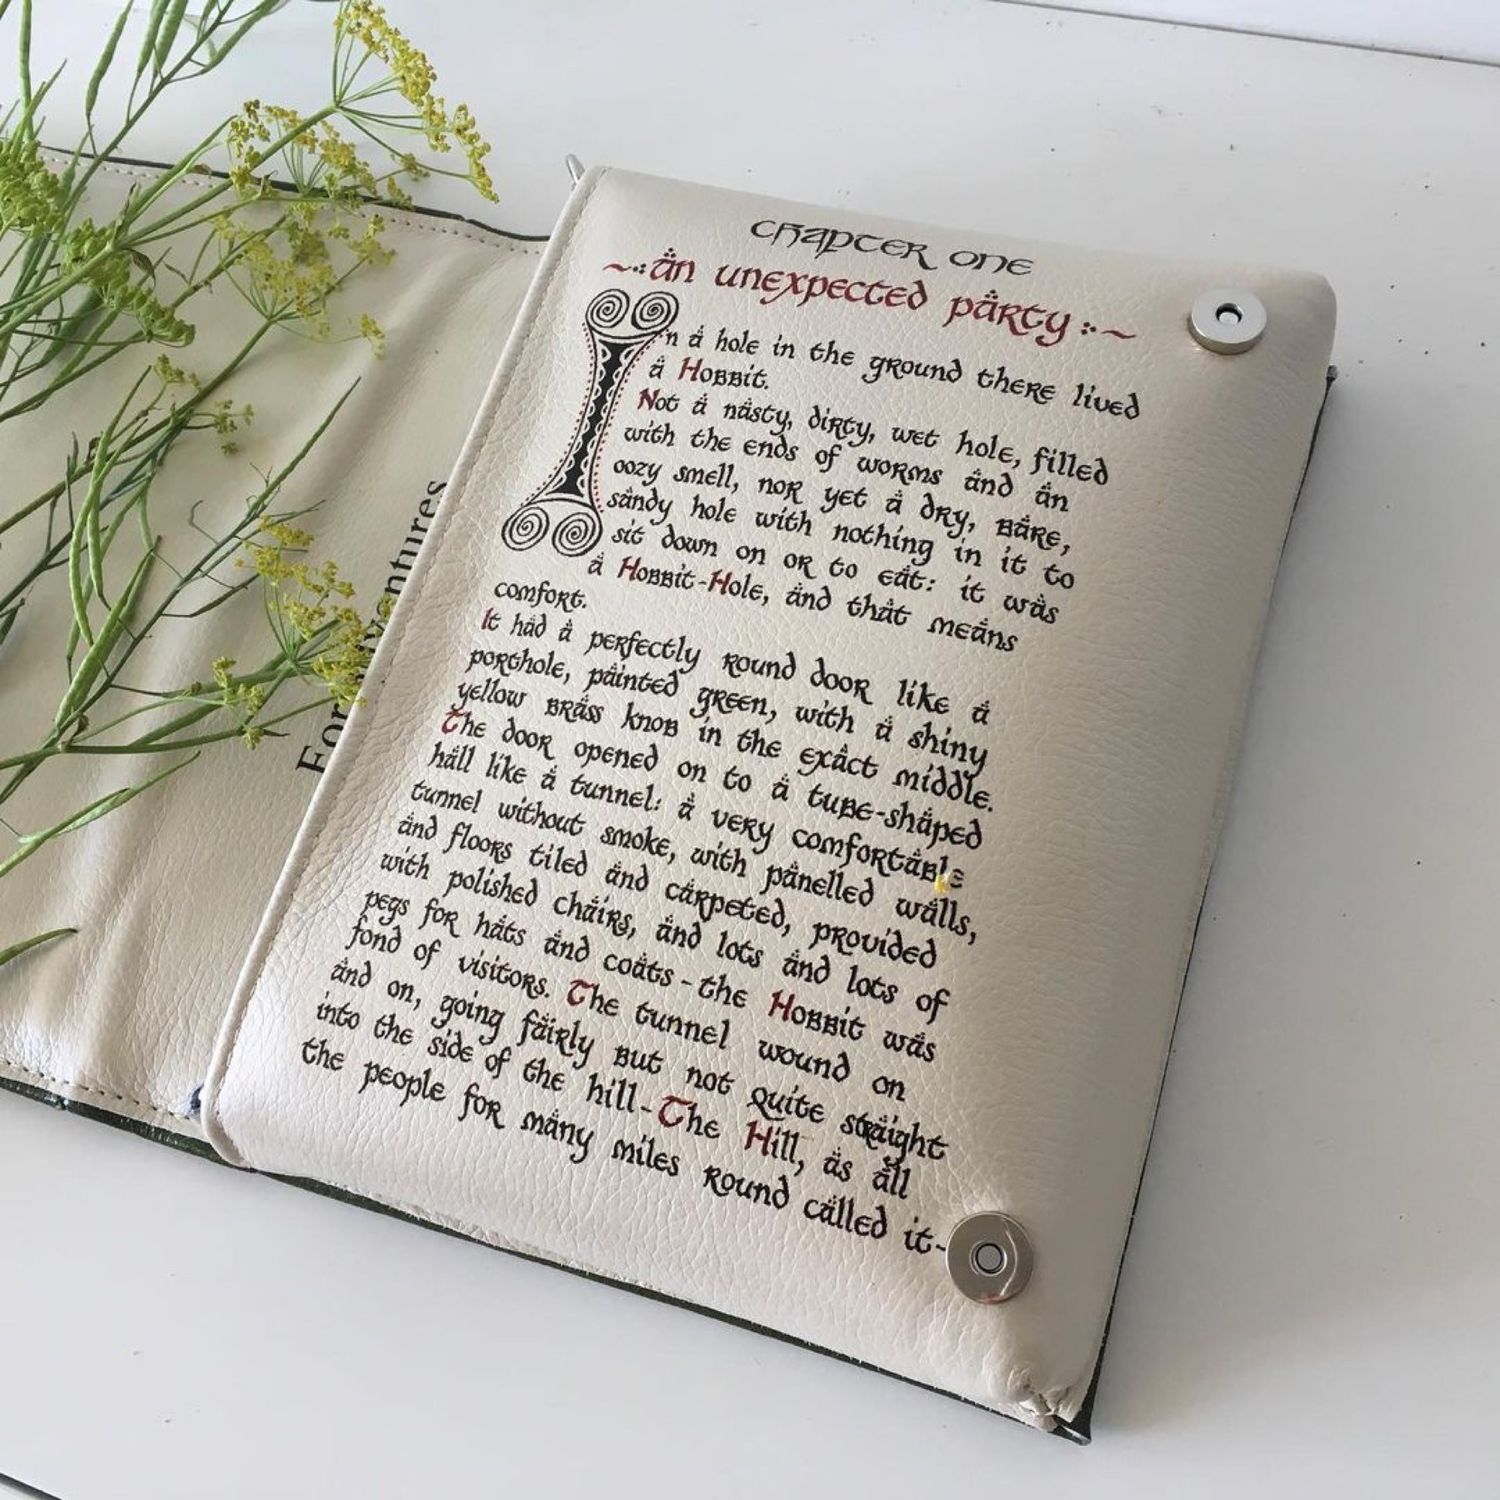 Chapter One
An Unexpected Party
In a hole in the ground there lived
a Hobbit.
Not a nasty, dirty, wet hole, filled
with the ends of worms and an
oozy smell, nor yet a dry, bare,
sandy hole with nothing in it to
sit down on or to eat: it was
a Hobbit-Hole, and that means
comfort.
It had a perfectly round door like a
porthole, painted green, with a shiny
yellow brass knob in the exact middle.
The door opened on to a tube-shaped
hall like a tunnel: a very comfortable
tunnel without smoke, with panelled walls,
and floors tiled and carpeted, provided
with polished chairs, and lots and lots of
pegs for hats and coats - the Hobbit was
fond of visitors. The tunnel wound on
and on, going fairly but not quite straight
into the side of the hill - The Hill, as all
the people for many miles round called it-
For